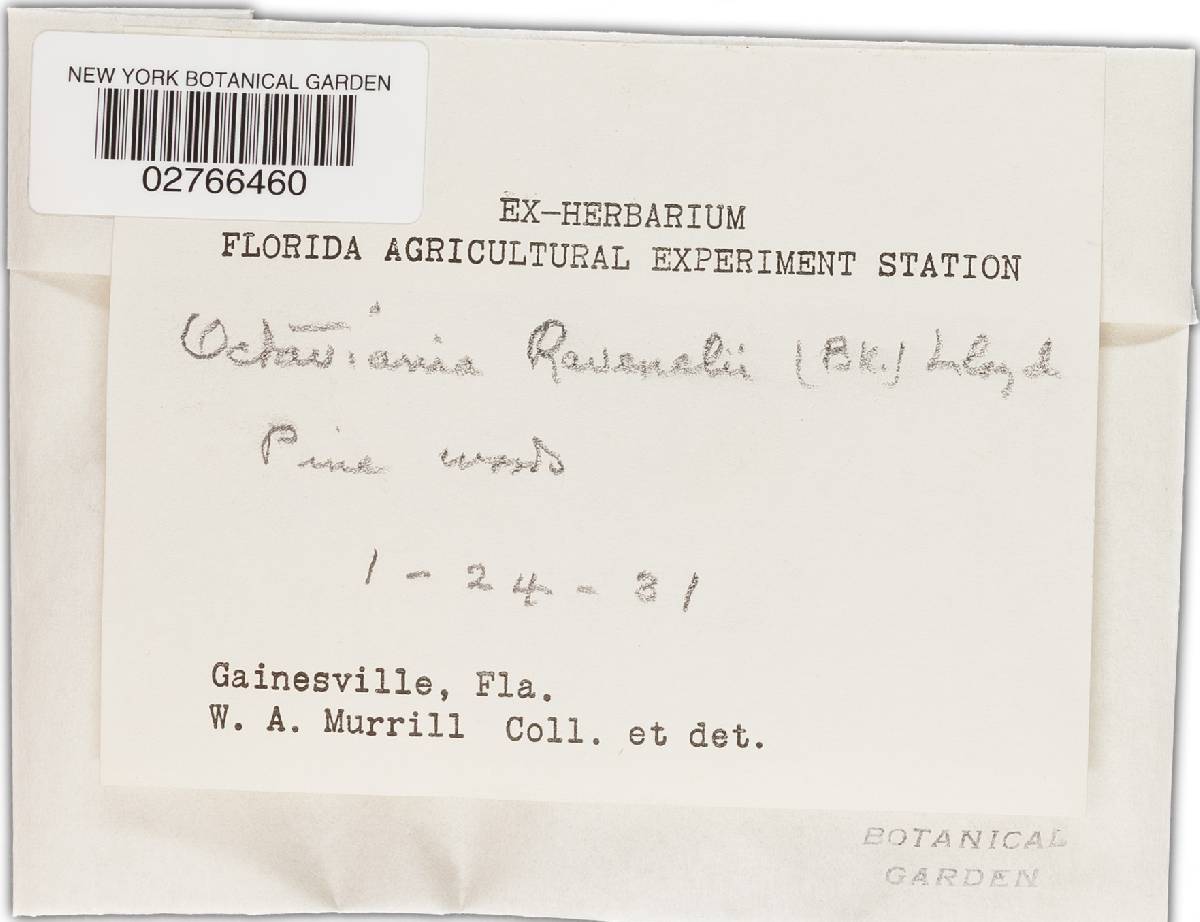 NEW YORK BOTANICAL GARDEN
02766460
EX-HERBARIUM
FLORIDA AGRICULTURAL EXPERIMENT STATION
Octaviania Ravenelii (Bk.) Lloyd
Pine woods
1 - 24 - 31
Gainesville, Fla.
W. A. Murrill Coll. et det.
BOTANICAL
GARDEN